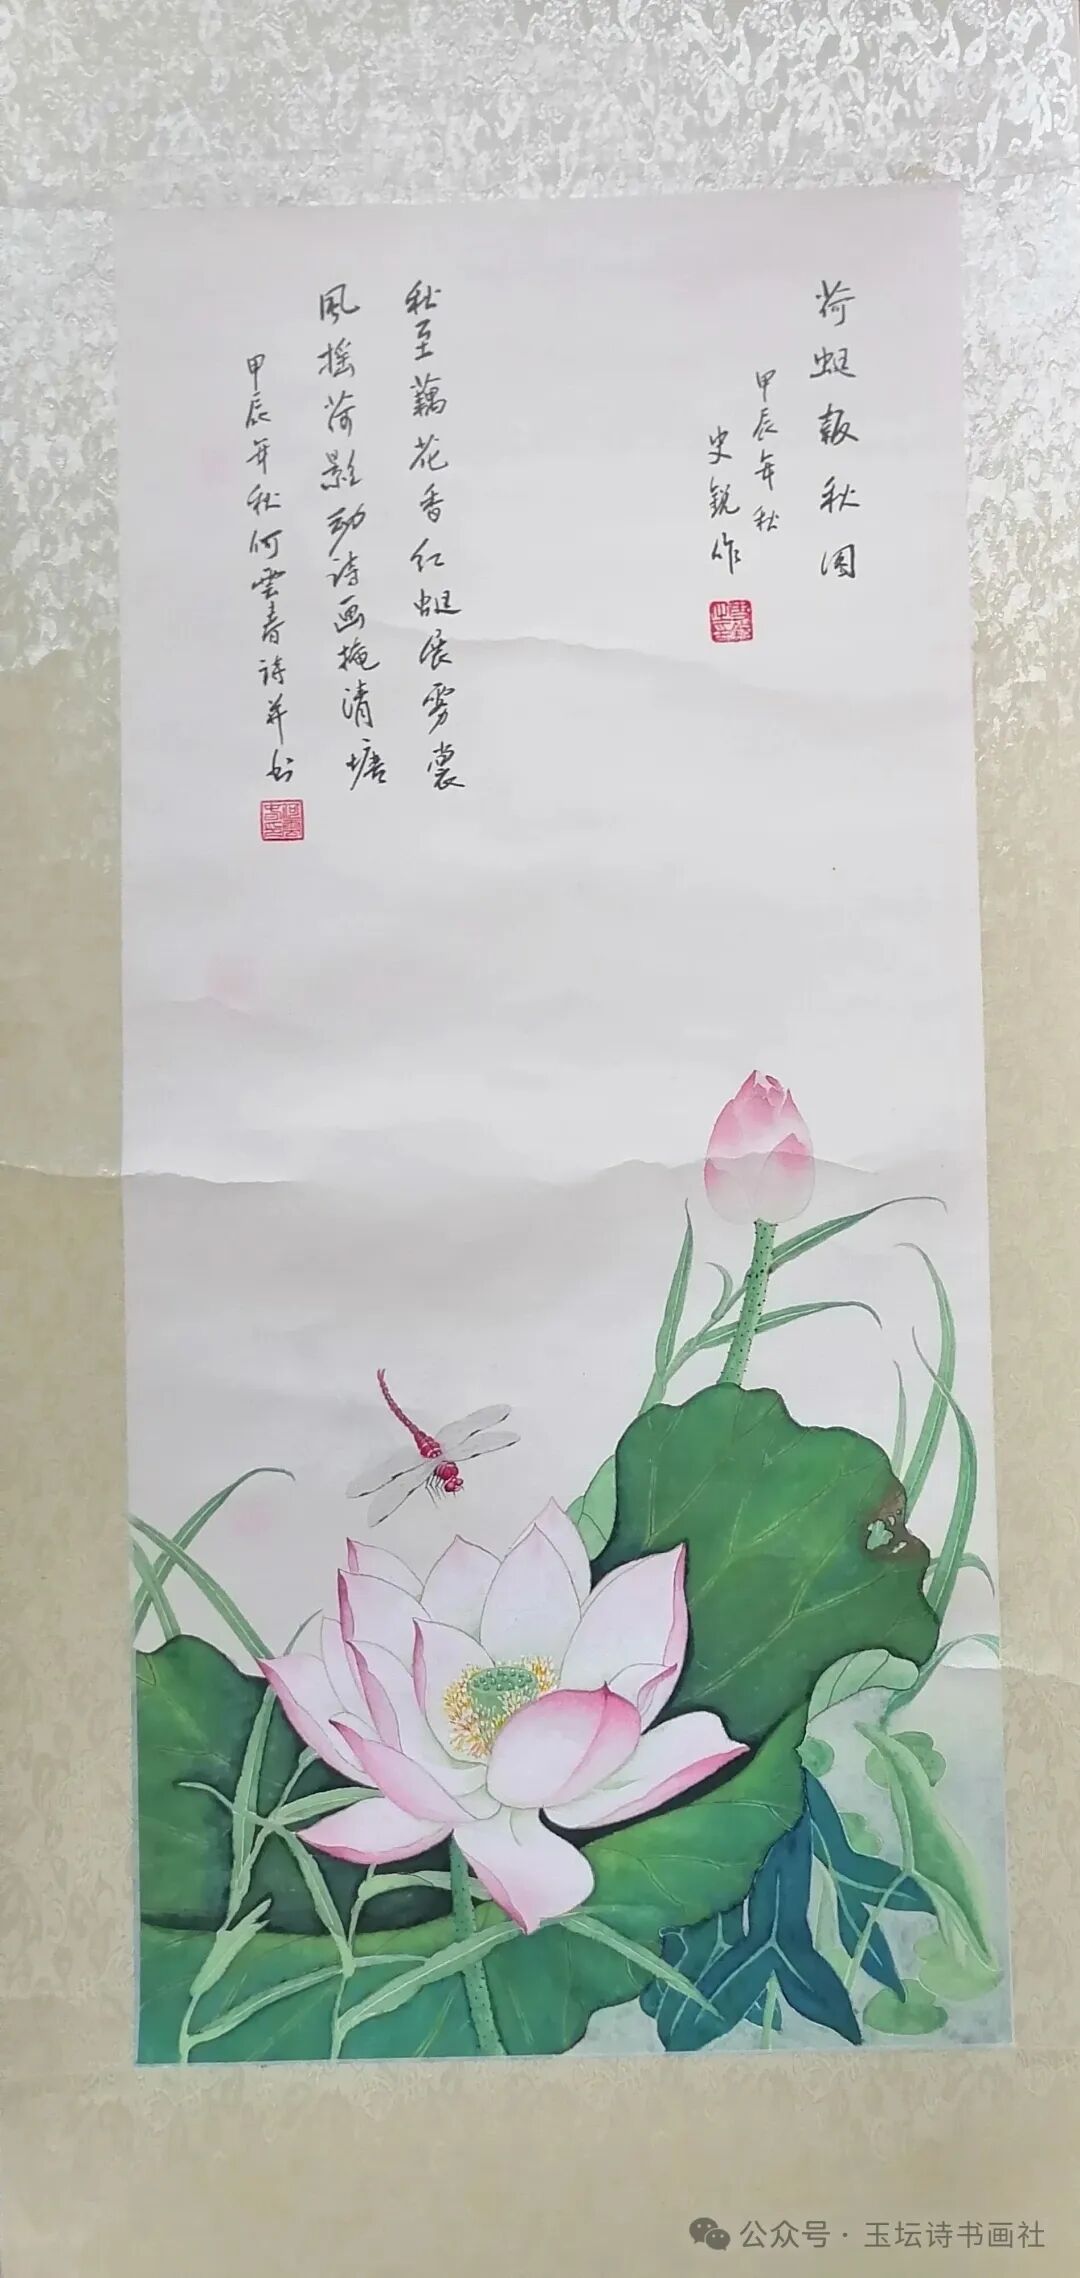 荷蜓報秋图
甲辰年秋
史锐作
秋至藕花香红蜓展雾裳
風摇荷影动诗画掩清塘
甲辰年秋何雲春诗并书
公众号·玉坛诗书画社